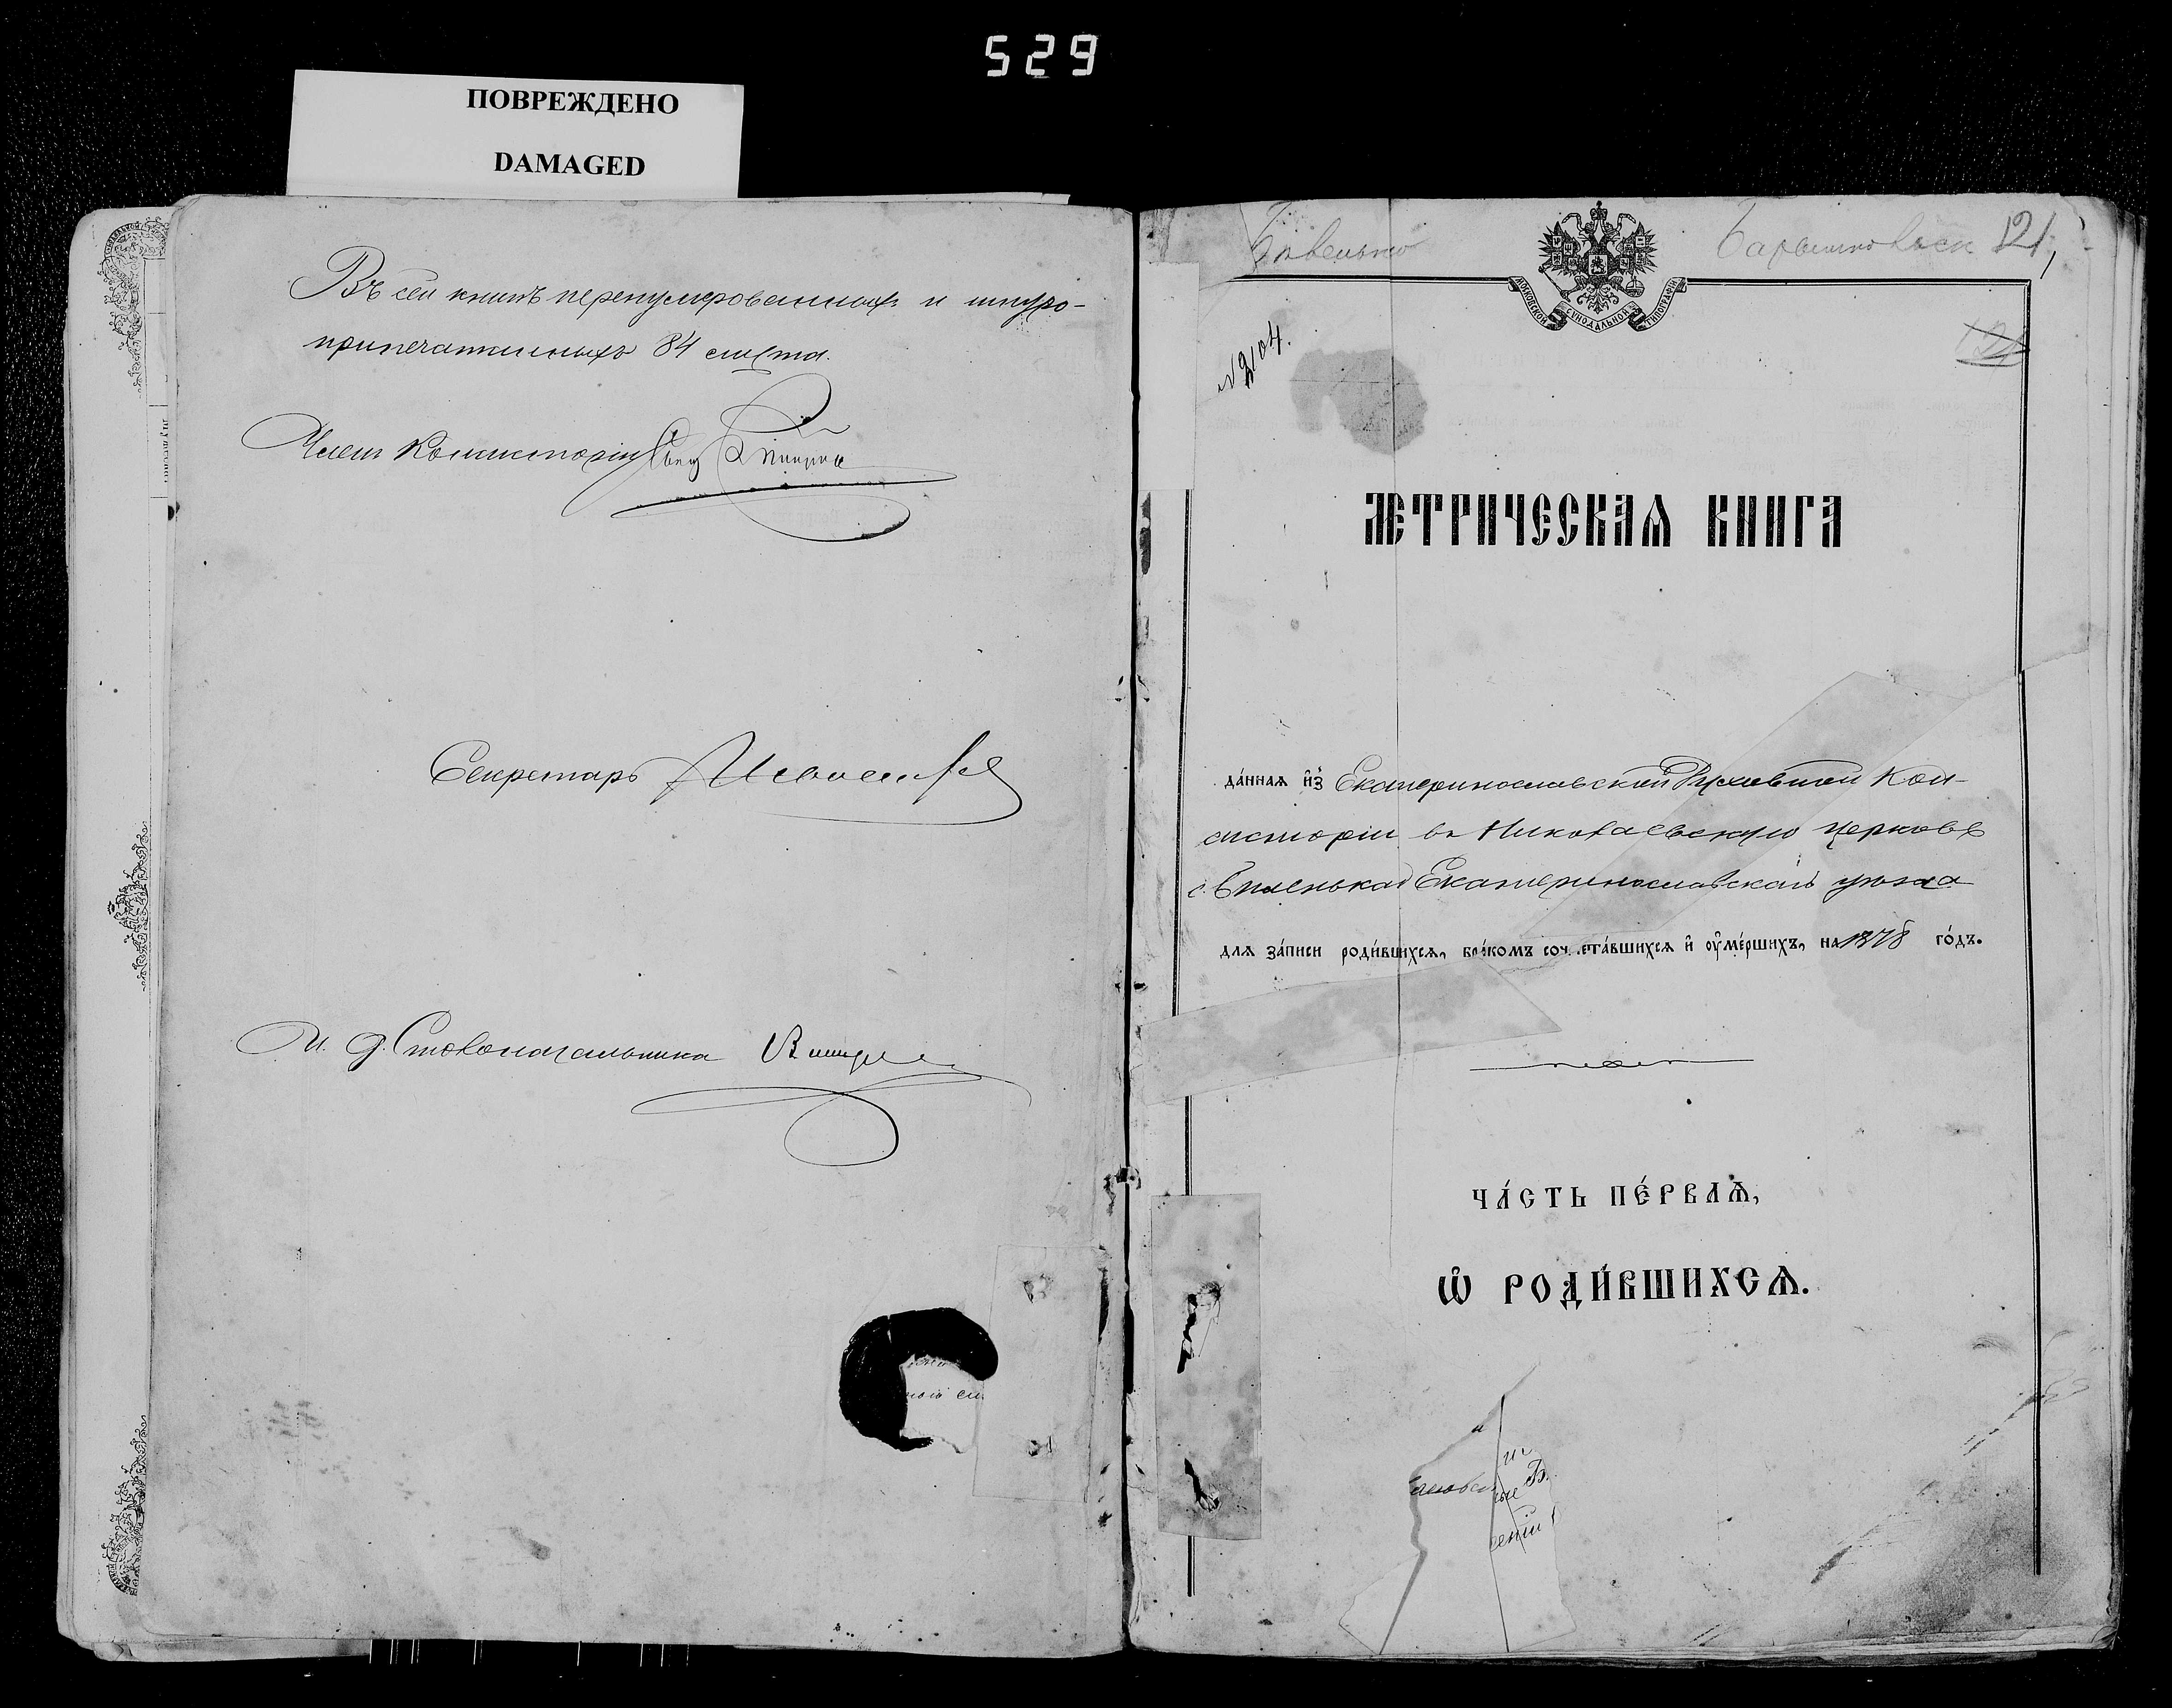 529
ПОВРЕЖДЕНО
DAMAGED
Въ сей книгѣ перенумерованныхъ и шнуро-
припечатанныхъ 84 листа.
Членъ Консисторіи
Секретарь
И. д. Столоначальника
121
МОСКОВСКОЙ СѴНОДАЛЬНОЙ ТИПОГРАФІИ
№ 2104.
МЕТРИЧЕСКАѦ КНИГА
да́ннаѧ и҆з̾ Екатеринославской Духовной Кон-
систоріи въ Николаевскую церковь
с. Биленькаго Екатеринославскаго уѣзда
длѧ за́писи роди́вшихсѧ, бра́комъ сочета́вшихсѧ и҆ ᲂу҆ме́ршихъ, на 1878 го́дъ.
ЧА́СТЬ ПЕ́РВАѦ,
Ѡ҆ РОДИ́ВШИХСѦ.